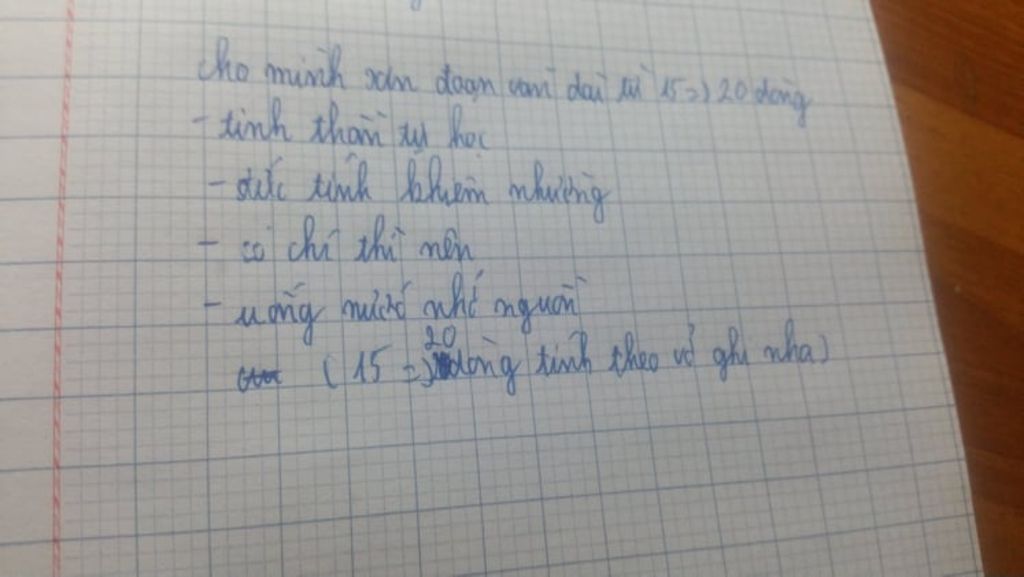 cho mình xin đoạn văn dài từ 15 => 20 dòng
- tinh thần tự học
- đức tính khiêm nhường
- có chí thì nên
- uống nước nhớ nguồn
( 15 => 20 dòng tính theo vở ghi nha )